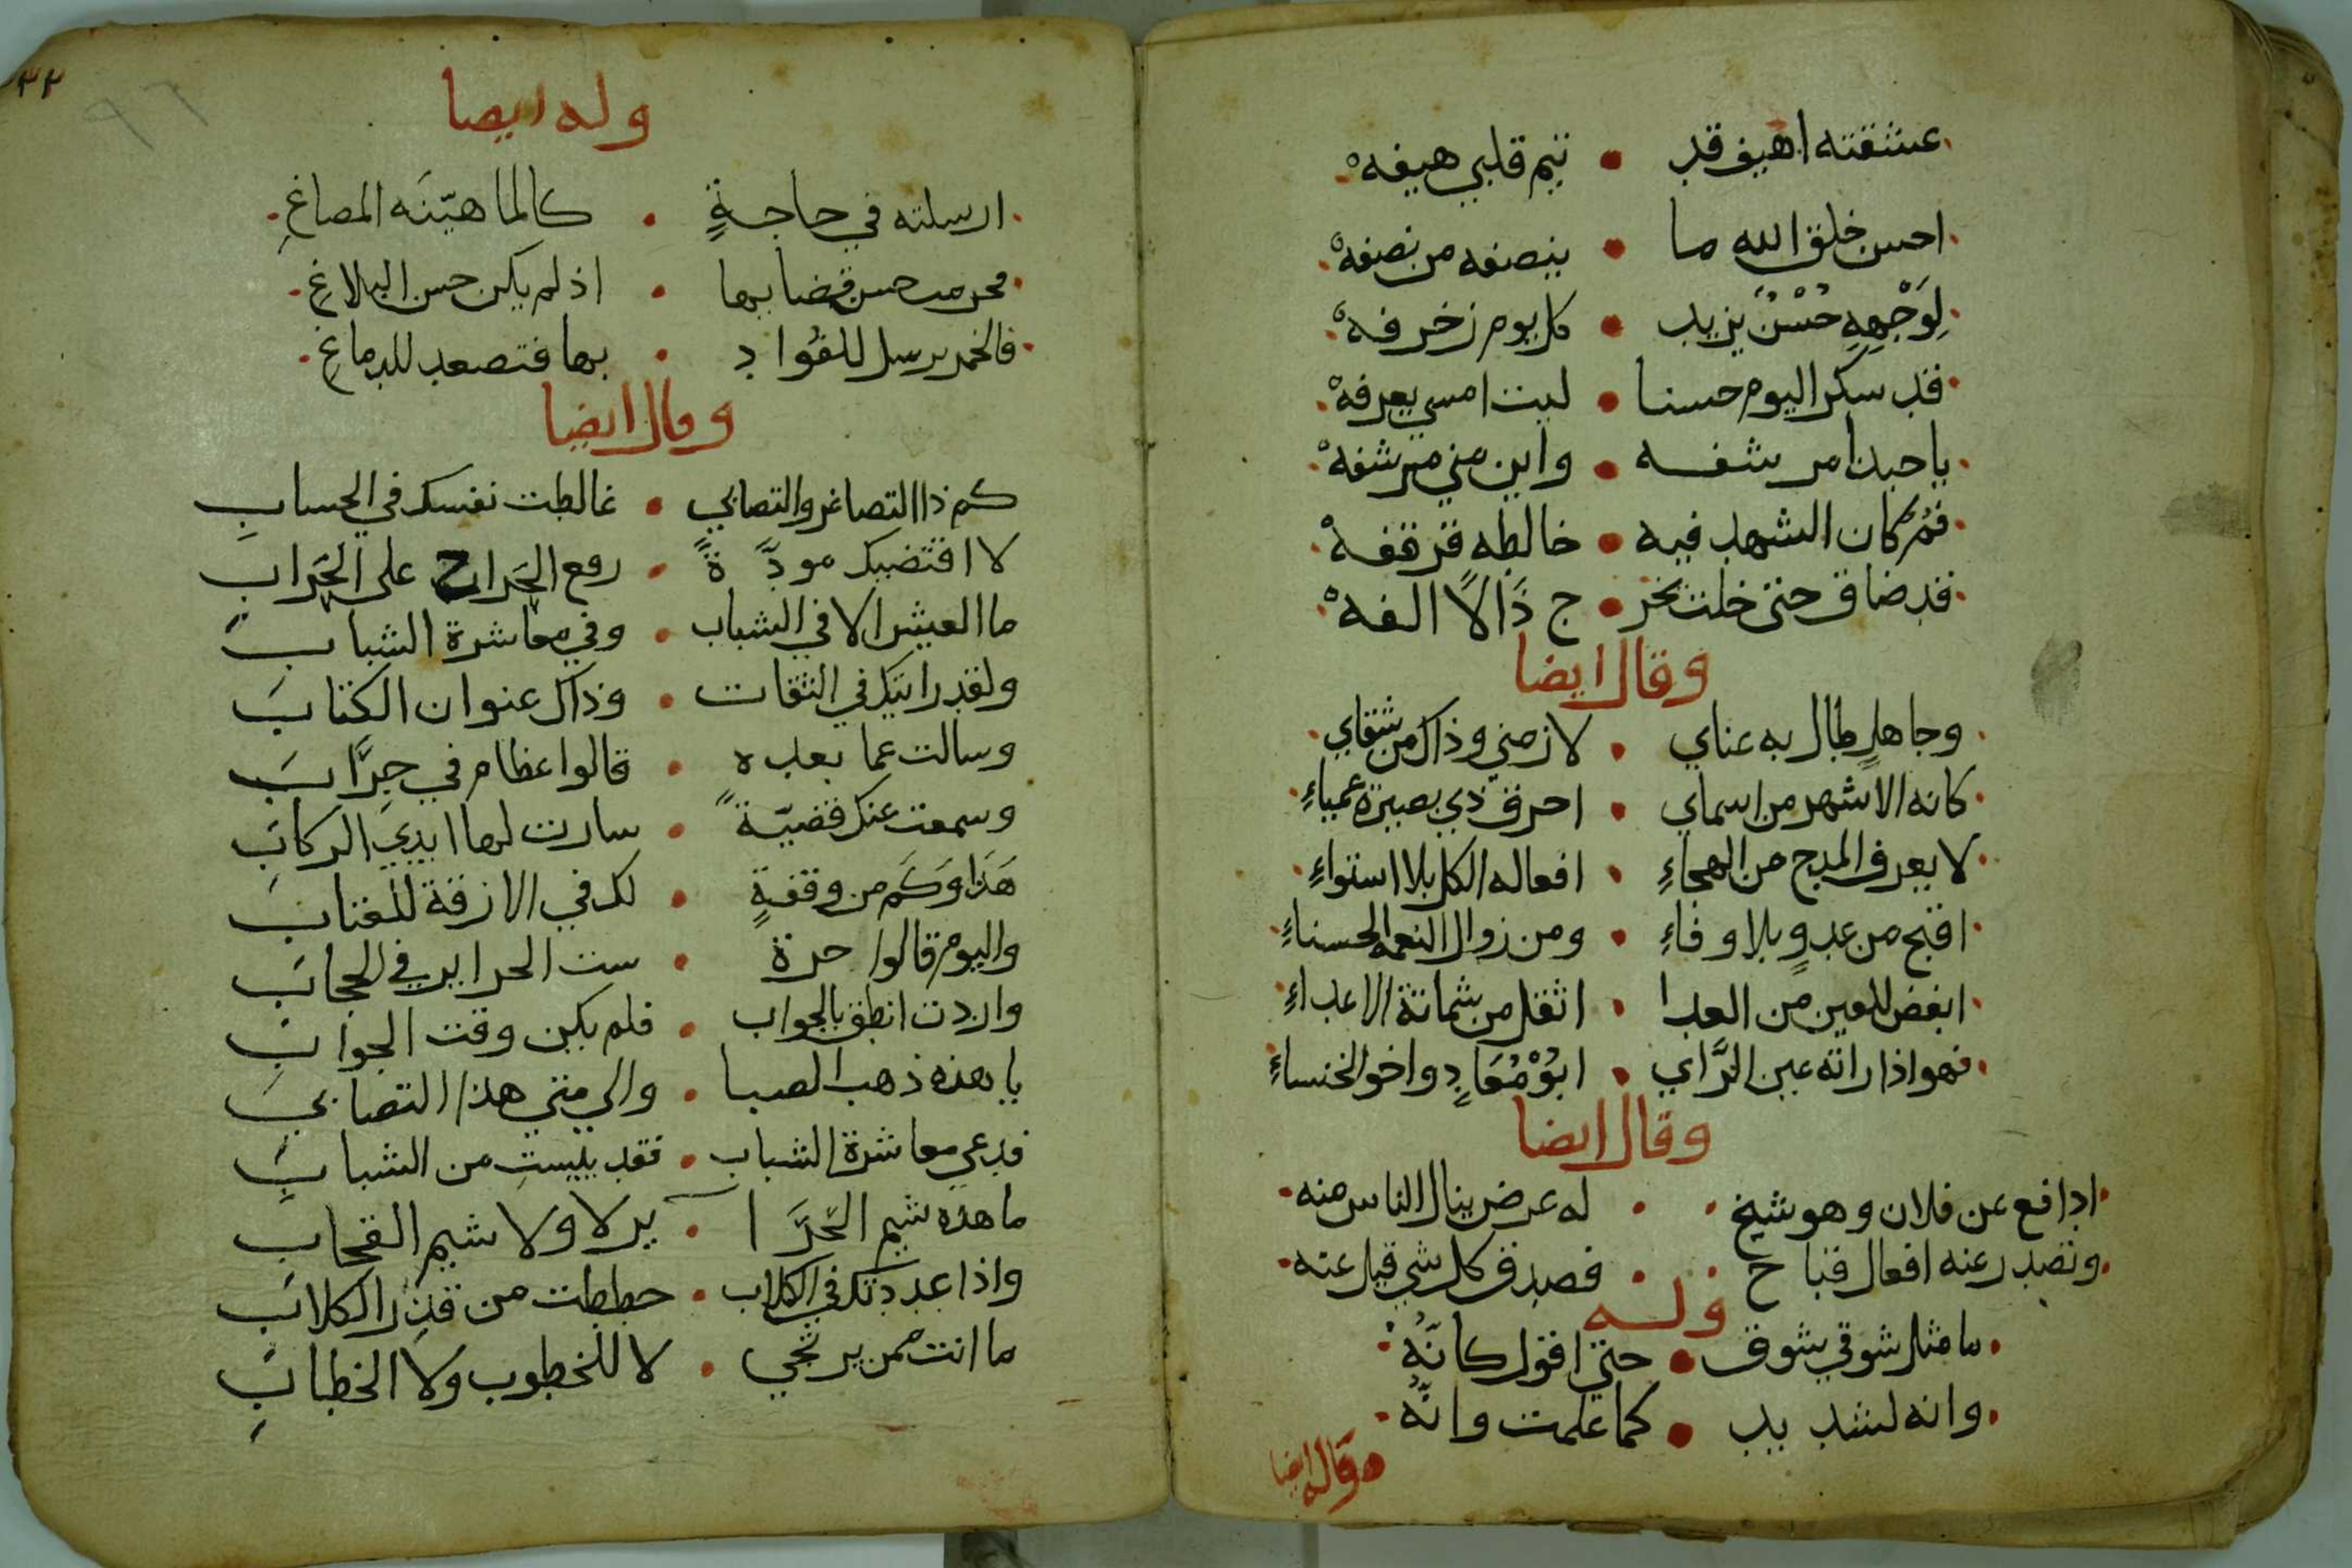 عشقته اهيف قد • تيم قلبي هيفه
احسن خلق الله ما • ينصفه من نصفه
لِوَجْهِهِ حُسْنٌ يزيد • كل يوم زخرفه
قد سكر اليوم حسنا • ليت امسي يعرفه
يا حبذا مرشفه • واين مني مرشفه
فم كان الشهد فيه • خالطه قرقفه
قد ضاق حتى خلت تخر • ج دَالاً الفه
وقال ايضا
وجاهلٍ طال به عناي • لازمني وذاك من شقاي
كانه الاشهر من اسماي • اخرق ذي بصيرة عمياءِ
لا يعرف المدح من الهجاءِ • افعاله الكل بلا استواءِ
اقبح من عدوٍ بلا وفاءِ • ومن زوال النعمه الحسناءِ
ابغض للعين من العدا • اثقل من شماتة الاعداءِ
فهو اذا راته عين الرَّاي • ابُوْ مُعَاذٍ واخو الخنساءِ
وقال ايضا
ادافع عن فلان وهو شيخ • له عرض ينال الناس منه
وتصدر عنه افعال قباح • فصدق كل شي قيل عنه
وله
ما مثل شوقي شوق • حتى اقول كانّهُ
وانه لشديد • كما علمت وانّهُ
وقال ايضا
٣٢
٩٦
وله ايضا
ارسلته في حاجةٍ • كالما هيّنَه المصاغِ
محرمت حسن قضايها • اذ لم يكن حسن البلاغِ
فالخمر يرسل للفُواد • بها فتصعد للدماغِ
وقال ايضا
كم ذا التصاغر والتصابي • غالطت نفسك في الحسابِ
لا اقتضيك مودَّةً • رفع الخَراج على الخَرابِ
ما العيش الا في الشباب • وفي معاشرة الشبابِ
ولقد رايتك في النقاب • وذاك عنوان الكتابِ
وسالت عما بعده • قالوا عظام في جِرَّابِ
وسمعت عنك قضيّةً • سارت لها ايدي الركابِ
هَذَا وَكَم من وقفةٍ • لك في الازقة للعتابِ
واليوم قالوا حرة • ست الحراير في الحجابِ
واردت انطق بالجواب • فلم يكن وقت الجوابِ
يا هذه ذهب الصبا • والى متي هذا التصابي
فدعي معاشرة الشباب • فقد ييستِ من الشبابِ
ما هذه شيم الحَرَا • ير لا ولا شيم القحابِ
واذا عددتك في الكلاب • حططت من قدر الكلابِ
ما انت ممن يرتجي • لا للخطوب ولا الخطابِ